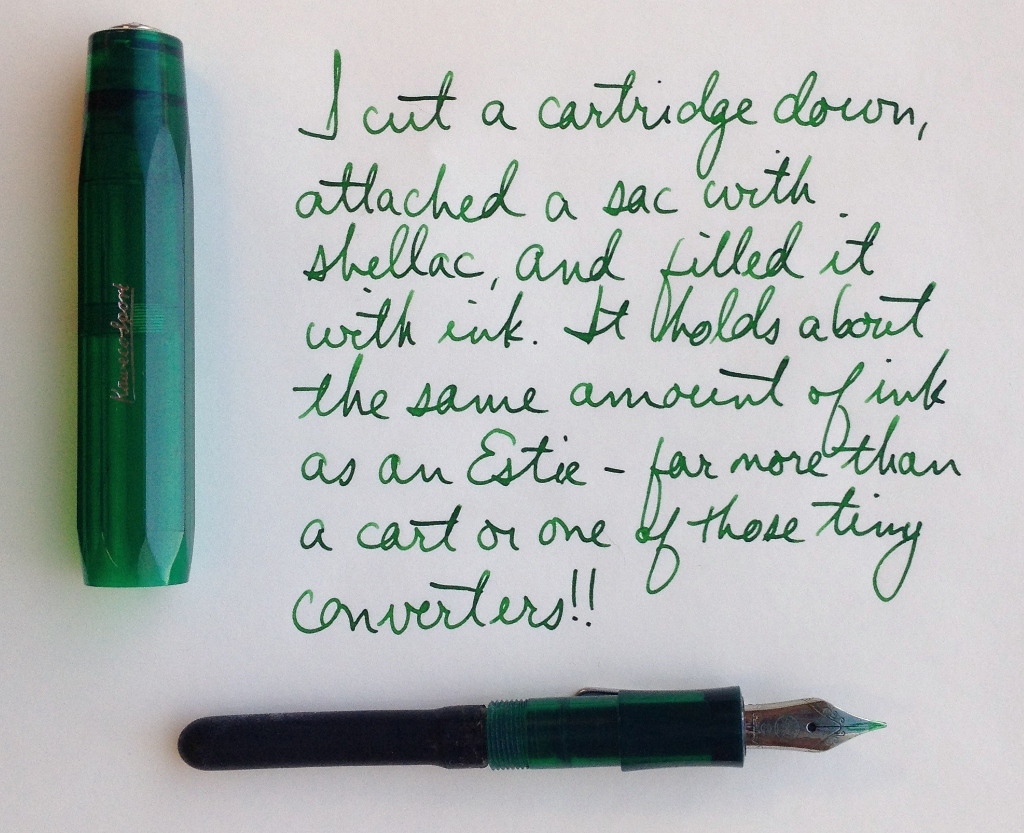 I cut a cartridge down,
attached a sac with
shellac, and filled it
with ink. It holds about
the same amount of ink
as an Estie – far more than
a cart or one of those tiny
converters!!
Kaweco Sport